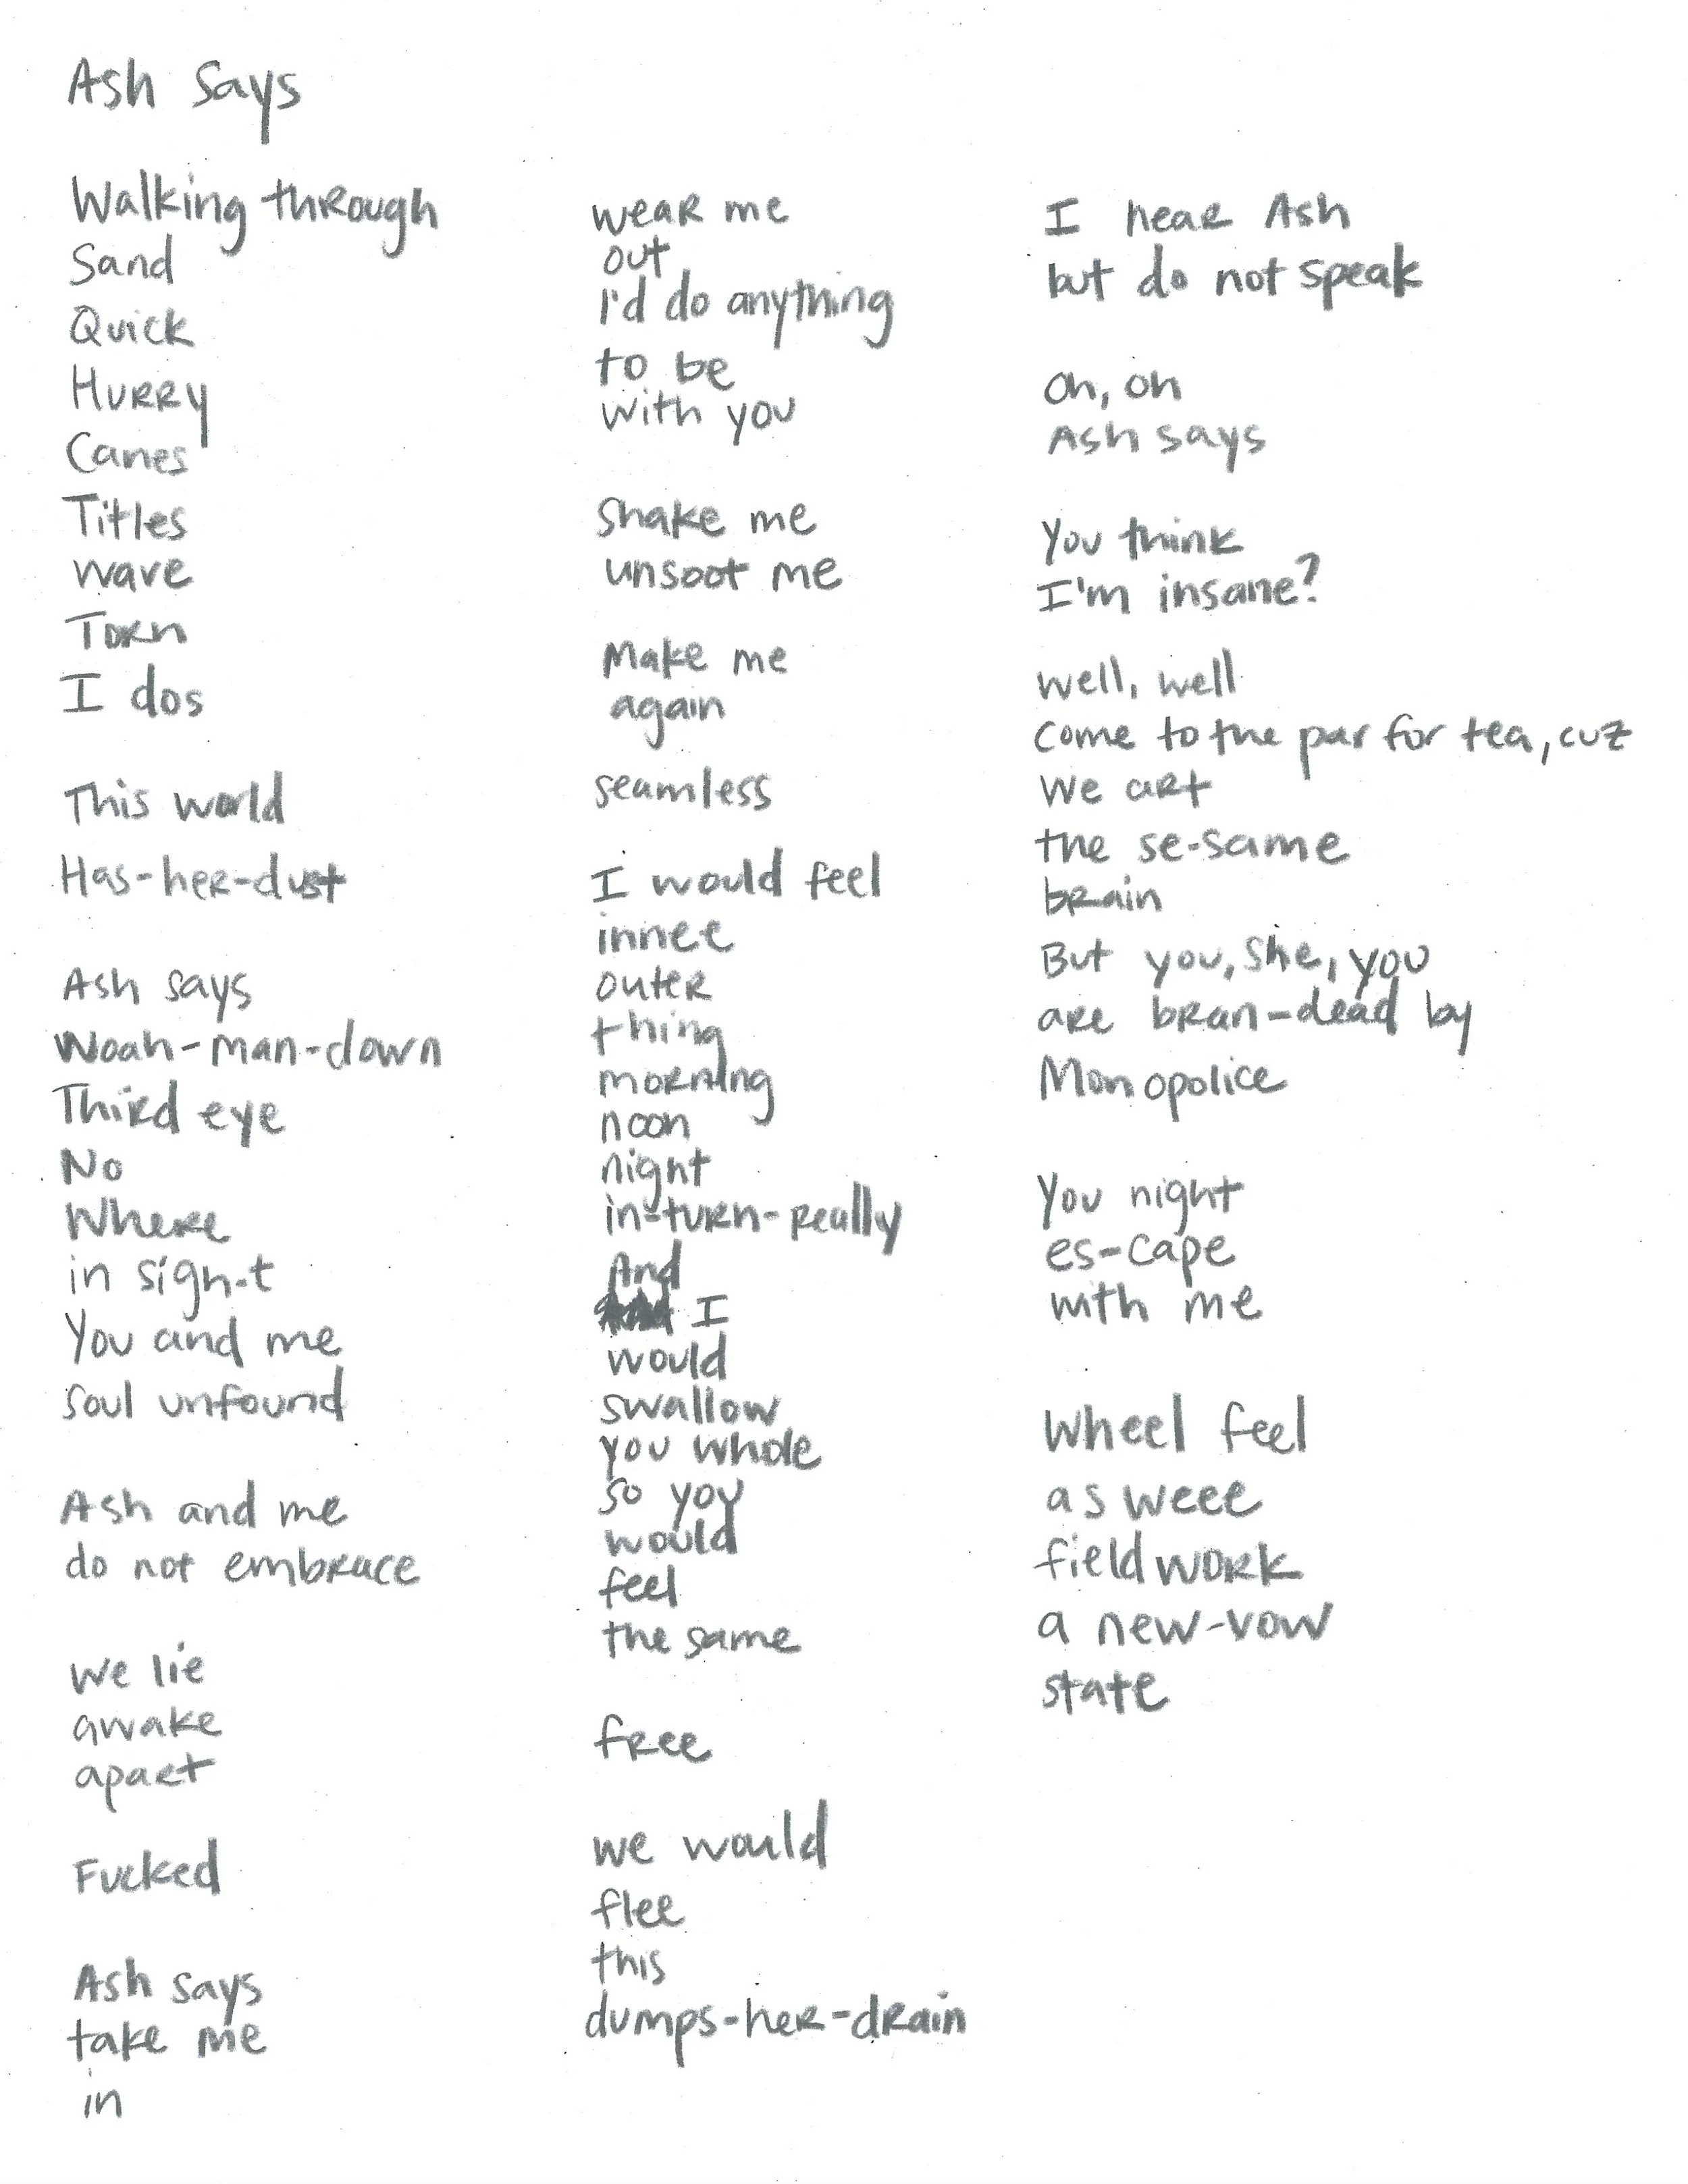 Ash says
Walking through
Sand
Quick
Hurry
Canes
Titles
wave
Torn
I dos
This world
Has-her-dust
Ash says
Woah-man-down
Third eye
No
Where
in sigh-t
You and me
soul unfound
Ash and me
do not embrace
we lie
awake
apart
Fucked
Ash says
take me
in
wear me
out
I'd do anything
to be
with you
Shake me
unsoot me
Make me
again
seamless
I would feel
inner
outer
thing
morning
noon
night
in-turn-really
And
I
would
swallow
you whole
so you
would
feel
the same
free
we would
flee
this
dumps-her-drain
I hear Ash
but do not speak
oh, oh
Ash says
You think
I'm insane?
well, well
come to the par for tea, cuz
We art
the se-same
brain
But you, she, you
are bran-dead by
Monopolice
You night
es-cape
with me
Wheel feel
as weee
field work
a new-vow
state